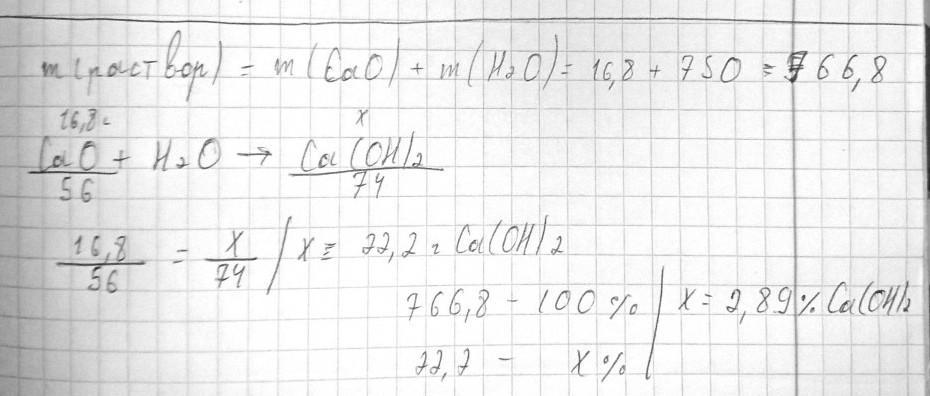 m(раствор) = m(CaO) + m(H2O) = 16,8 + 750 = 766,8
16,8г x
CaO + H2O → Ca(OH)2
56 74
16,8/56 = x/74 | x = 22,2 г Ca(OH)2
766,8 - 100 % | x = 2,89 % Ca(OH)2
22,2 - x %